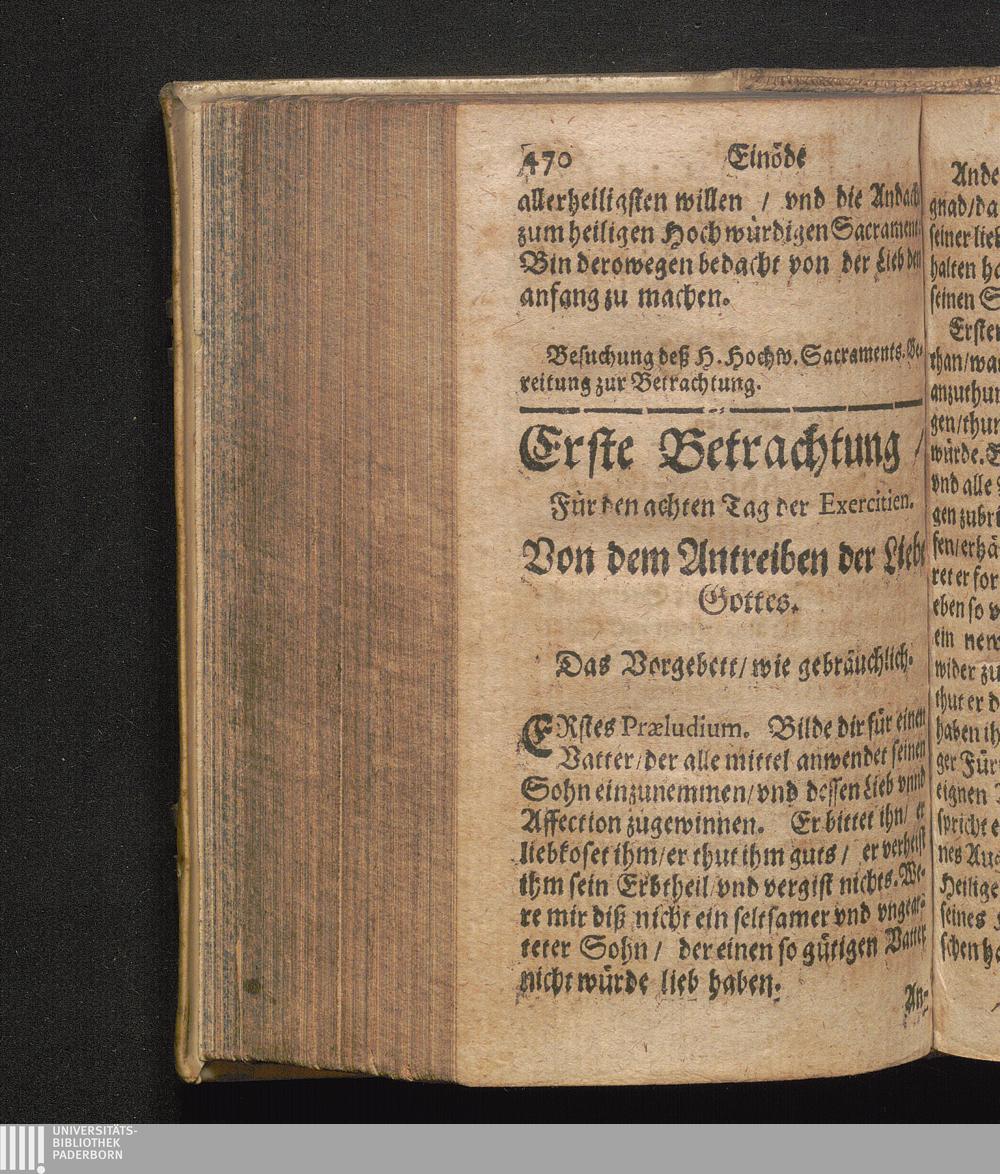 470 Einöde
allerheiligsten willen / vnd die Andacht
zum heiligen Hochwürdigen Sacrament.
Bin derowegen bedacht von der Lieb den
anfang zu machen.
Besuchung deß H. Hochw. Sacraments. Be-
reitung zur Betrachtung.
Erste Betrachtung /
Für den achten Tag der Exercitien.
Von dem Antreiben der Liebe
Gottes.
Das Vorgebett / wie gebräuchlich.
ERstes Præludium. Bilde dir für einen
Vatter / der alle mittel anwendet seinen
Sohn einzunemmen / vnd dessen Lieb vnnd
Affection zugewinnen. Er bittet ihn / er
liebkoset ihm / er thut ihm guts / er verheist
ihm sein Erbtheil / vnd vergist nichts. We-
re mir diß nicht ein seltsamer vnd vngear-
teter Sohn / der einen so gütigen Vatter
nicht würde lieb haben.
An-
Ande
gnad / da
seiner lieb
halten ha
seinen S
Ersten
than / wa
anzuthun
gen / thun
würde. E
vnd alle
gen zubri
sen / erhä
ret er for
eben so v
ein new
wider zu
thut er d
haben ih
ger Für
eignen
spricht e
nes Aug
Heilige
seines
schen ha
UNIVERSITÄTS-
BIBLIOTHEK
PADERBORN